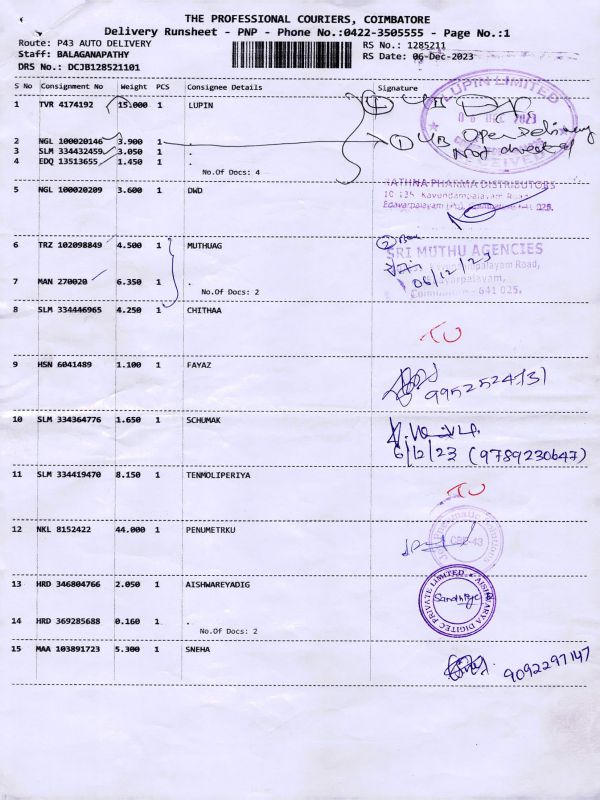 THE PROFESSIONAL COURIERS, COIMBATORE
Delivery Runsheet - PNP - Phone No.:0422-3505555 - Page No.:1
Route: P43 AUTO DELIVERY
RS No.: 1285211
Staff: BALAGANAPATHY
RS Date: 06-Dec-2023
DRS No.: DCJB128521101
S No Consignment No Weight PCS Consignee Details Signature
1 TVR 4174192 15.000 1 LUPIN
LUPIN LIMITED
1 UB Open Delivery
Not checked
RECEIVED
2 NGL 100020146 3.900 1 .
3 SLM 334432459 3.050 1 .
4 EDQ 13513655 1.450 1 .
No.Of Docs: 4
5 NGL 100020209 3.600 1 DWD
RATHNA PHARMA DISTRIBUTORS
Kavundampalayam
6 TRZ 102098849 4.500 1 MUTHUAG
2 Box
SRI MUTHU AGENCIES
palayam Road,
06/12/23
641 025.
7 MAN 270020 6.350 1 .
No.Of Docs: 2
8 SLM 334446965 4.250 1 CHITHAA
TU
9 HSN 6041489 1.100 1 FAYAZ
10 SLM 334364776 1.650 1 SCHUMAK
6/12/23 (9789230647)
11 SLM 334419470 8.150 1 TENMOLIPERIYA
TU
12 NKL 8152422 44.000 1 PENUMETRKU
CBE-43
13 HRD 346804766 2.050 1 AISHWAREYADIG
AISHWARYA DIGITEC PRIVATE LIMITED
14 HRD 369285688 0.160 1 .
No.Of Docs: 2
15 MAA 103891723 5.300 1 SNEHA
9092297147